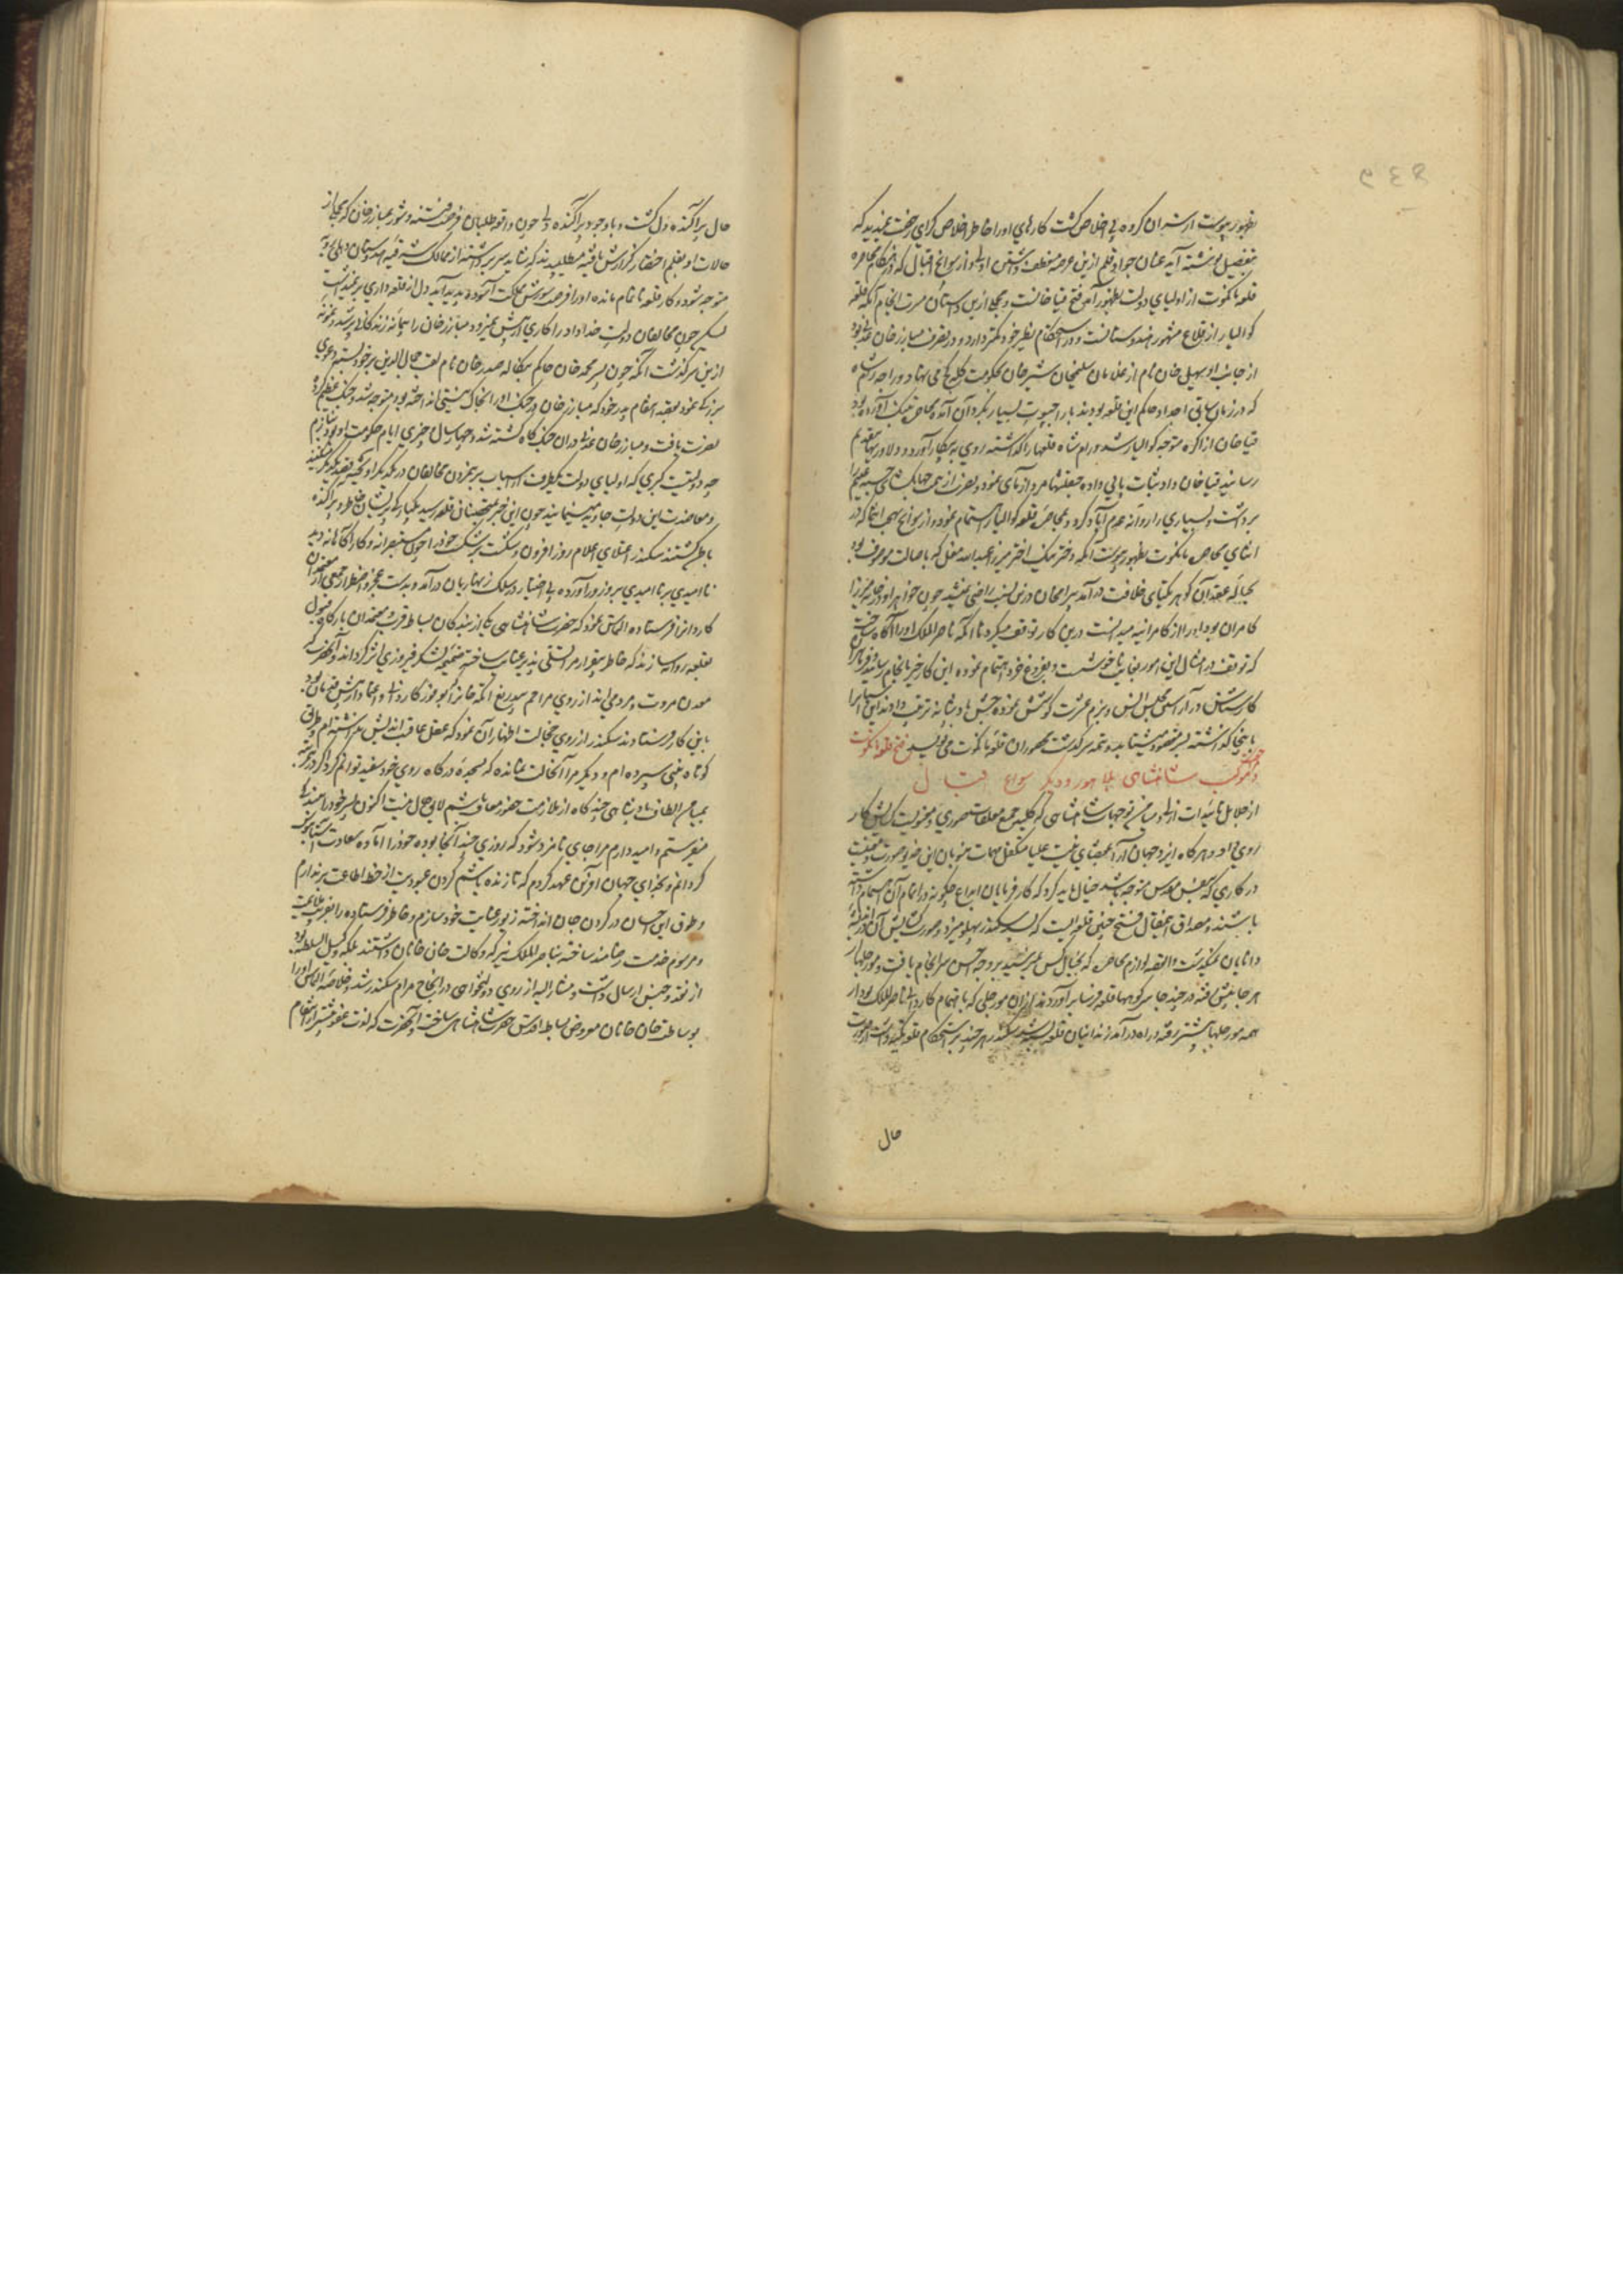 بظهور پیوست ازسران گروه بی اخلاص گشت کارهای او را خاطر اخلاص گرای رخصت نمیدید که
بتفصیل نوشته آید عنان جواد قلم ازین عرصه منعطف داشتن اولی و از سوانح اقبال که در هنگام محاصره
قلعه مانکوت از اولیای دولت بظهور آمد فتح قیاخانست و مجملی ازین داستان مسرت انجام آنکه قلعه
کوالیار از قلاع مشهور هندوستانست و در استحکام نظیر خود کمتر دارد و در تصرف مبارزخان عدلی بود
از جانب او بهیل خان نام از غلامان سلیمخان بن شیرخان بحکومت قلعه می پرداخت و راجه رامشاه
که در زمان سابق اجداد حاکم این قلعه بودند با راجپوت بسیار بگرد آن آمده محاصره تنک آورده بود
قیاخان از اگره متوجه کوالیار شد و رامشاه قلعه را گذاشته روی به پیکار آورد و دلاوریها بتقدیم
رسانید قیاخان داد ثبات پایی داده جنگهای مردآزمای نمود و نصرت از
برداشت و بسیاری را روانه عدم آباد کرد و بمحاصره قلعه کوالیار اهتمام نمود و از سوانح بهجت انتما که در
اثنای محاصره مانکوت بظهور پیوست آنکه دختر نیک اختر میرزا عبدالله مغل که باصالت موصوف بود
بحباله عقد آن گوهر یکتای خلافت درآمد بیرامخان درین نسبت راضی نمیشد چون خواهر او در خانه میرزا
کامران بود او را از کامرانیه میدانست درین کار توقف میکرد تا آنکه ناصرالملک او را آگاه ساخت
که توقف در امثال این امور بغایت ناخوشست و بفروغ خود اهتمام نموده این کار خیر بانجام رسانید
کارشناسان در آراستگی مجلس انس و بزم عشرت کوشش نموده جشن پادشاهانه ترتیب دادند
باینجا گذاشته بسر مقصود میشتابد و تتمه سرگذشت محصوران قلعه مانکوت می نویسد فتح قلعه مانکوت
و نهضت موکب شاهنشاهی بلاهور و دیگر سوانح اقبال
از جلایل تائیدات ازلی و میامن توجهات شاهنشاهی که کلید جمیع مغلقات صوری و معنویست گشایش کار
روی داد و هرگاه ایزد جهان آرا بمقتضای مشیت علیا متکفل مهمات منوبان این خدیو صورت و معنیست
در کاری که بنفس مقدس متوجه باشد خیال باید کرد که کارفرمایان ابداع چگونه در اتمام آن اهتمام داشته
باشند و مصداق این مقال فتح چنین قلعه ایست که بسپهر پهلو میزد و صورت گشایش آن در اندیشه
دانایان نمیگذشت والقصه لوازم محاصره که بخیال کس نمیرسید بروجه احسن سرانجام یافت و مورچلها از
هرجا پیش رفته در چند جا سرکوبها قلعه فرسا برآوردند ازان مورچلی که باهتمام کاردانی ناصرالملک بود از
همه مورچلها پیشتر رفته و راه درآمد زندانیان قلعه بسته شد سکندر هرچند بر استحکام قلعه تکیه داشت از صورت
حال
حال پراکنده دل گشت و با وجود پراکنده دلی چون واقعه طلبان عرصه فتنه و شور مبارزخان که مجملی از
حالات او بقلم اختصار گزارش یافته میطلبیدند که شاید سر برداشته از ممالک شرقیه هندوستان دهلی رویه
متوجه شود و کار قلعه ناتمام مانده او را فرصت شورش مملکت آسوده پدید آید دل از قلعه داری بر نمیداشت
لیکن چون مخالفان دولت خداداد را کاری از پیش نمیرود مبارزخان را پیمانه زندگانی پر شد و نمونه
ازین سرگذشت آنکه چون پسر محمدخان حاکم بنگاله صدرخان نام لقب جلال الدین بر خود بسته دعوی
بزرگی نمود بقصد انتقام پدر خود که مبارزخان در جنگ او را بخاک نیستی انداخته بود متوجه شد و جنگ عظیم کرده
نصرت یافت و مبارزخان عدلی دران جنگ گاه کشته شد و چهار سال و چیزی ایام حکومت او بود بنازم
چه دولتیست کبری که اولیای دولت یکطرف اسباب برهمزدن مخالفان در یکدیگر آویخته بقصد یکدیگر میکنند
و معاضدت این دولت جاوید مینمایند چون این خبر بمتحصنان قلعه رسید یکبارگی پریشان خاطر و پراکنده
باطن گشتند سکندر اعتلای اعلام روز افزون و شکست بر شکست خود را بچشم مستبصرانه و کارآگاهانه دید
ناامیدی بر ناامیدی بر وی زور آورده بی اختیار در سلک زنهاریان درآمد و بدست عجز و اضطرار جمعی از معتمدان
کاردانرا فرستاده التماس نمود که حضرت شاهنشاهی یکی از بندگان بساط قرب و معتمدان بارگاه قبول
بقلعه روانه سازند که خاطر بیقرار مرا تسلی پذیر عنایت ساخته ضمیمه لشکر فیروزی اثر گرداند و آنحضرت که
معدن مروت و مردمی اند از روی مراحم بیدریغ اتکه خانرا که بوفور کاردانی و اعتماد امتیاز بخش فرمان بود
باین کار فرستادند سکندر از روی خجالت اظهار آن نمود که عقل عاقبت اندیش نداشته ام و طریق
کوتاه بینی سپرده ام و دیگر مرا آنحالت نمانده که بسجده درگاه روی خود سفید توانم کرد اگر درین مرتبه
بمیامن الطاف پادشاهی چندگاه از ملازمت حضور معاف باشم لایق حال منست اکنون پسر خود را به بندگی
میفرستم و امیدوارم مرا جای نامزد شود که روزی چند آنجا بوده خود را آماده سعادت آستانبوس
گردانم و بخدای جهان آفرین عهد کردم که تا زنده باشم گردن عبودیت از خط اطاعت برندارم
و طوق این احسان در گردن جان انداخته زیور عنایت خود سازم و خاطر فرستاده را بغرایب
و مرسوم خدمت رضامند ساخته بناصرالملک نیز که وکالت خان خانان داشتند بلکه وکیل السلطنه بود
از نقد و جنس ارسال داشت و مشارالیه از روی دولتخواهی در انجاح مرام سکندر شد و خلاصه التماس او را
بوساطت خان خانان معروض بساط اقدس حضرت شاهنشاهی ساخت آنحضرت که لذت عفو بیشتر از انتقام